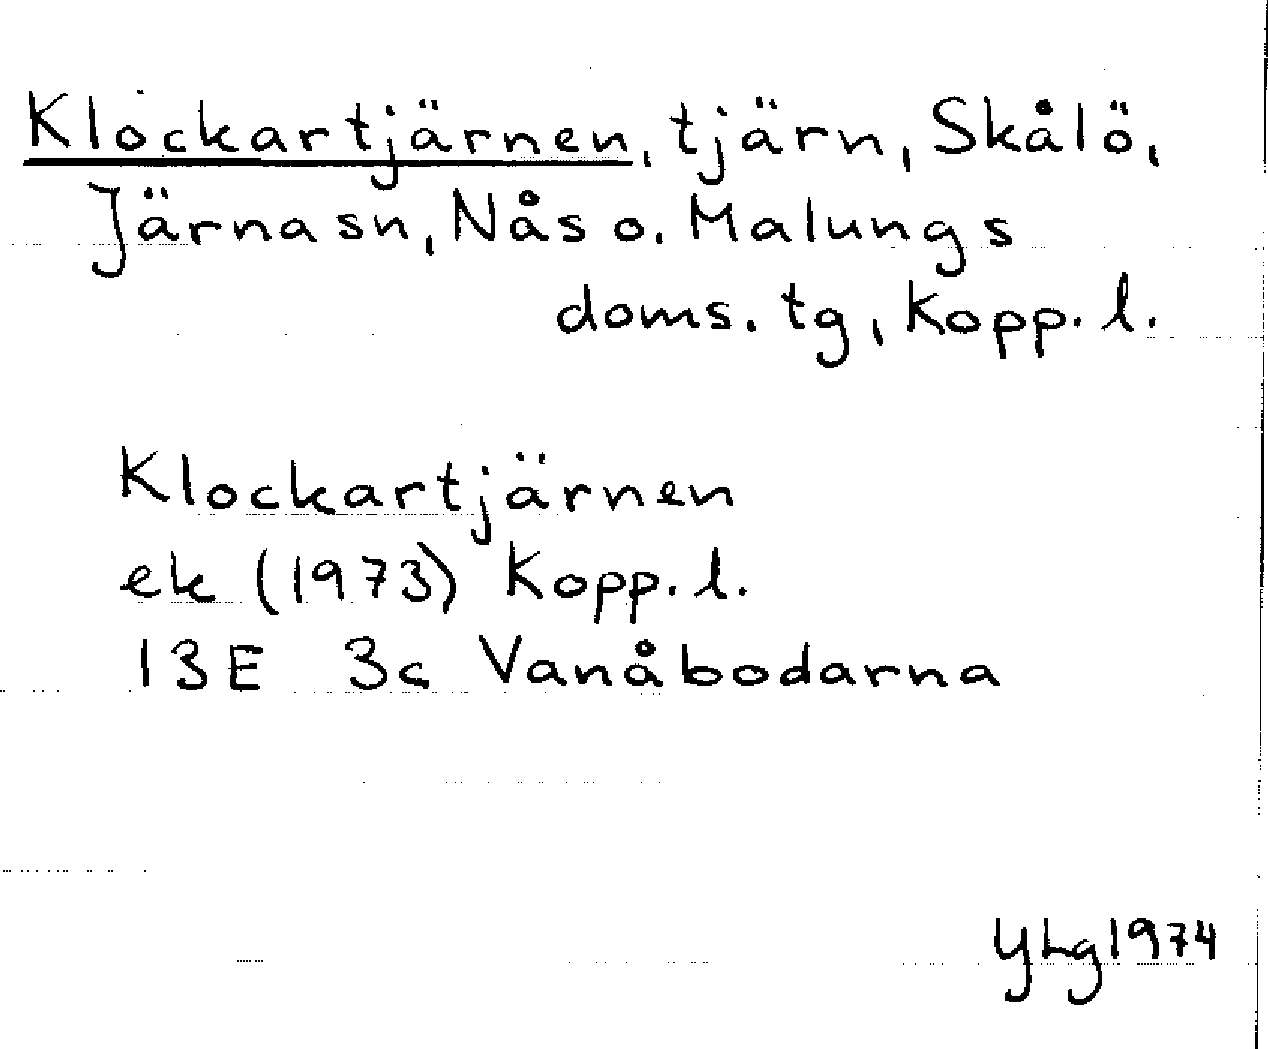 Klockartjärnen, tjärn, Skålö,
Järna sn, Nås o. Malungs
doms. tg, Kopp. l.
Klockartjärnen
ek (1973) Kopp. l.
13E 3c Vanåbodarna
YLg 1974